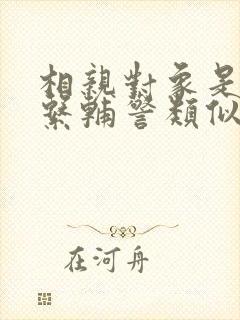 相親對象是
輔警類似
在河舟